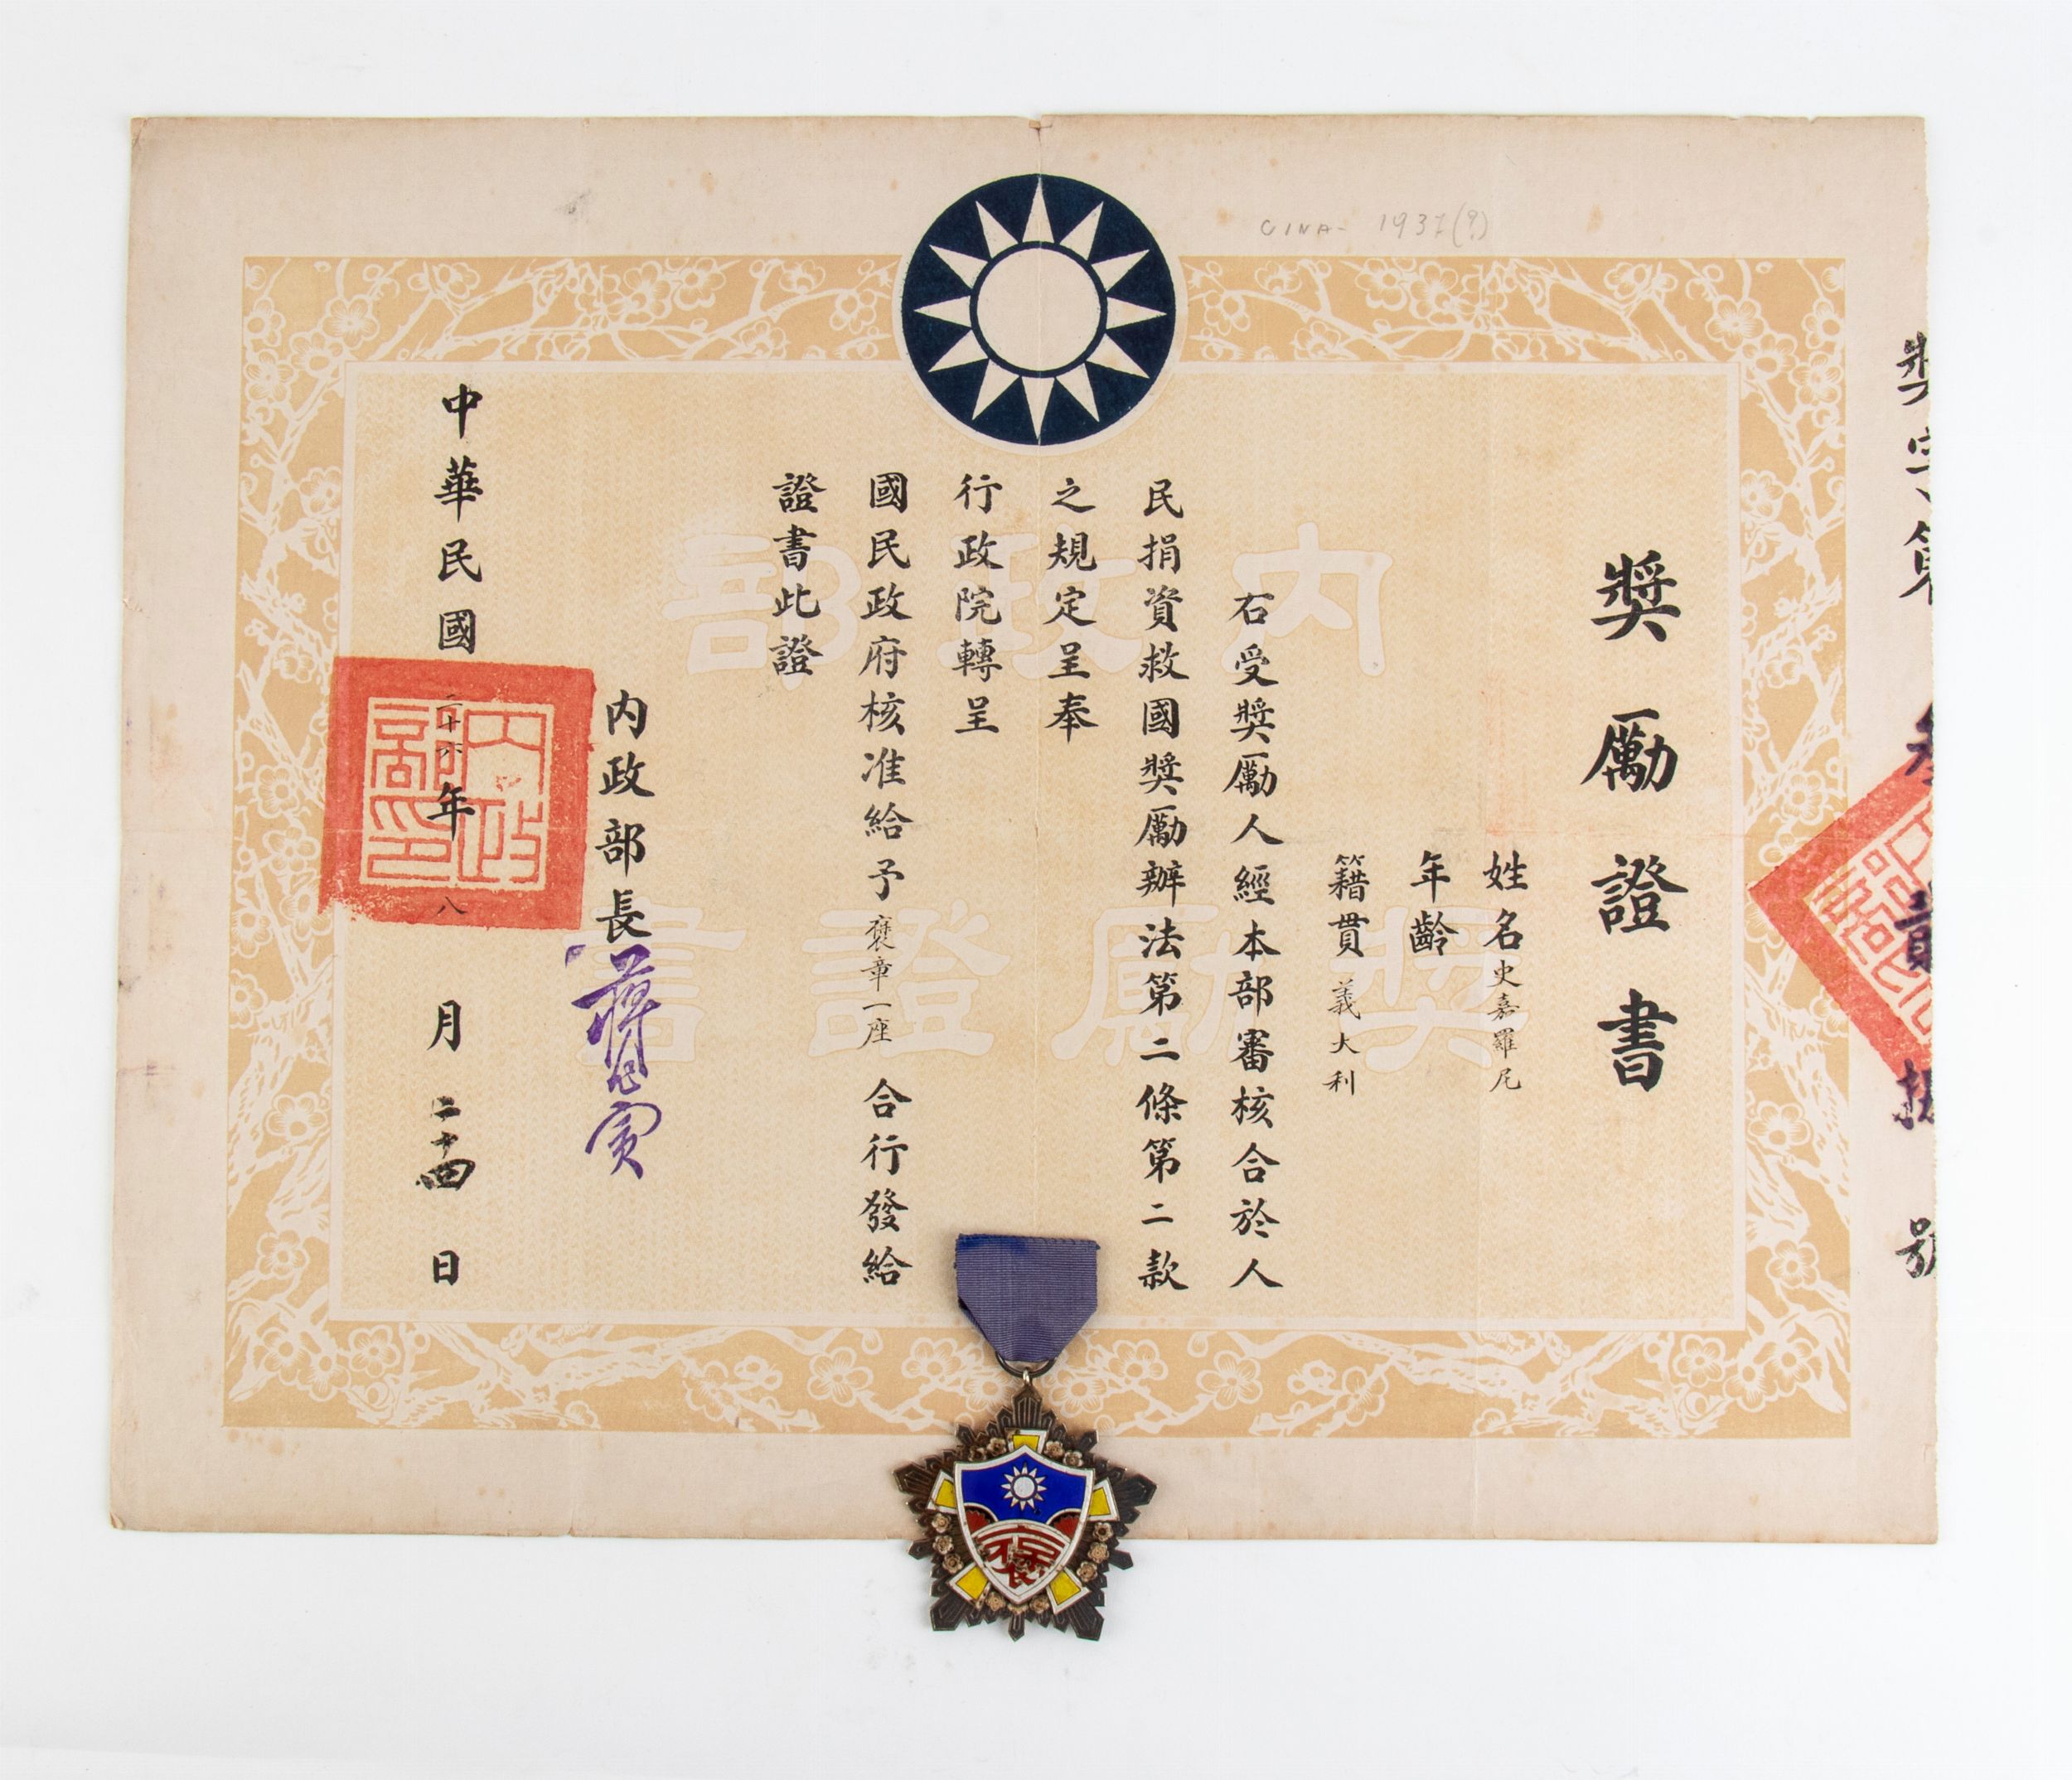 獎字第 號
獎勵證書
姓名史嘉羅尼
年齡
籍貫義大利
右受獎勵人經本部審核合於人
民捐資救國獎勵辦法第二條第二款
之規定呈奉
行政院轉呈
國民政府核准給予褒章一座 合行發給
證書此證
內政部長蔣作賓
中華民國二十六年八月二十四日
內政部
獎勵證書
內政部印
CINA - 1937(?)
褒